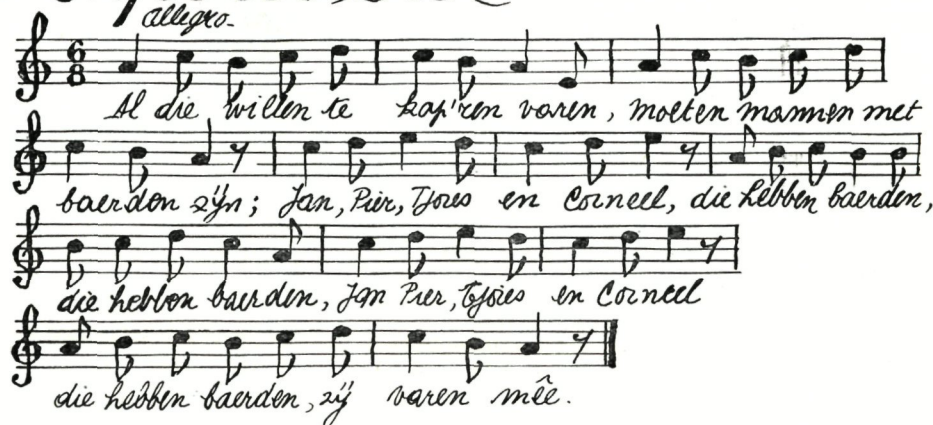 allegro.
6
8
Al die willen te kap'ren varen, moeten mannen met
baerden zijn; Jan, Pier, Tjores en Corneel, die hebben baerden,
die hebben baerden, Jan Pier, Tjores en Corneel
die hebben baerden, zij varen mêê.